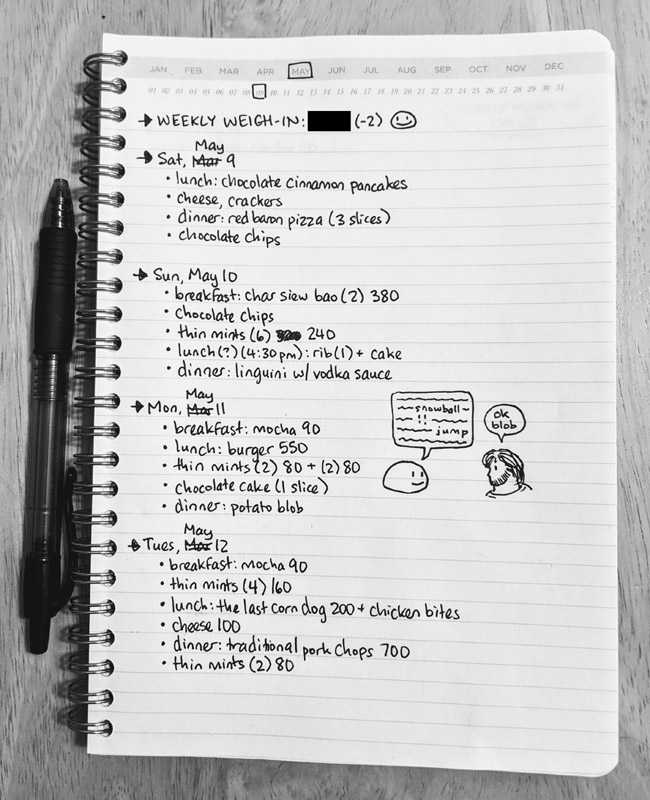 JAN FEB MAR APR MAY JUN JUL AUG SEP OCT NOV DEC
01 02 03 04 05 06 07 08 09 10 11 12 13 14 15 16 17 18 19 20 21 22 23 24 25 26 27 28 29 30 31
WEEKLY WEIGH-IN: (-2)
May
Sat, Mar 9
• lunch: chocolate cinnamon pancakes
• cheese, crackers
• dinner: red baron pizza (3 slices)
• chocolate chips
Sun, May 10
• breakfast: char siew bao (2) 380
• chocolate chips
• thin mints (6) 240
• lunch(?) (4:30pm): rib(1) + cake
• dinner: linguini w/ vodka sauce
May
Mon, Mar 11
• breakfast: mocha 90
• lunch: burger 550
• thin mints (2) 80 + (2) 80
• chocolate cake (1 slice)
• dinner: potato blob
snowball
!!
jump
ok
blob
May
Tues, Mar 12
• breakfast: mocha 90
• thin mints (4) 160
• lunch: the last corn dog 200 + chicken bites
• cheese 100
• dinner: traditional pork chops 700
• thin mints (2) 80